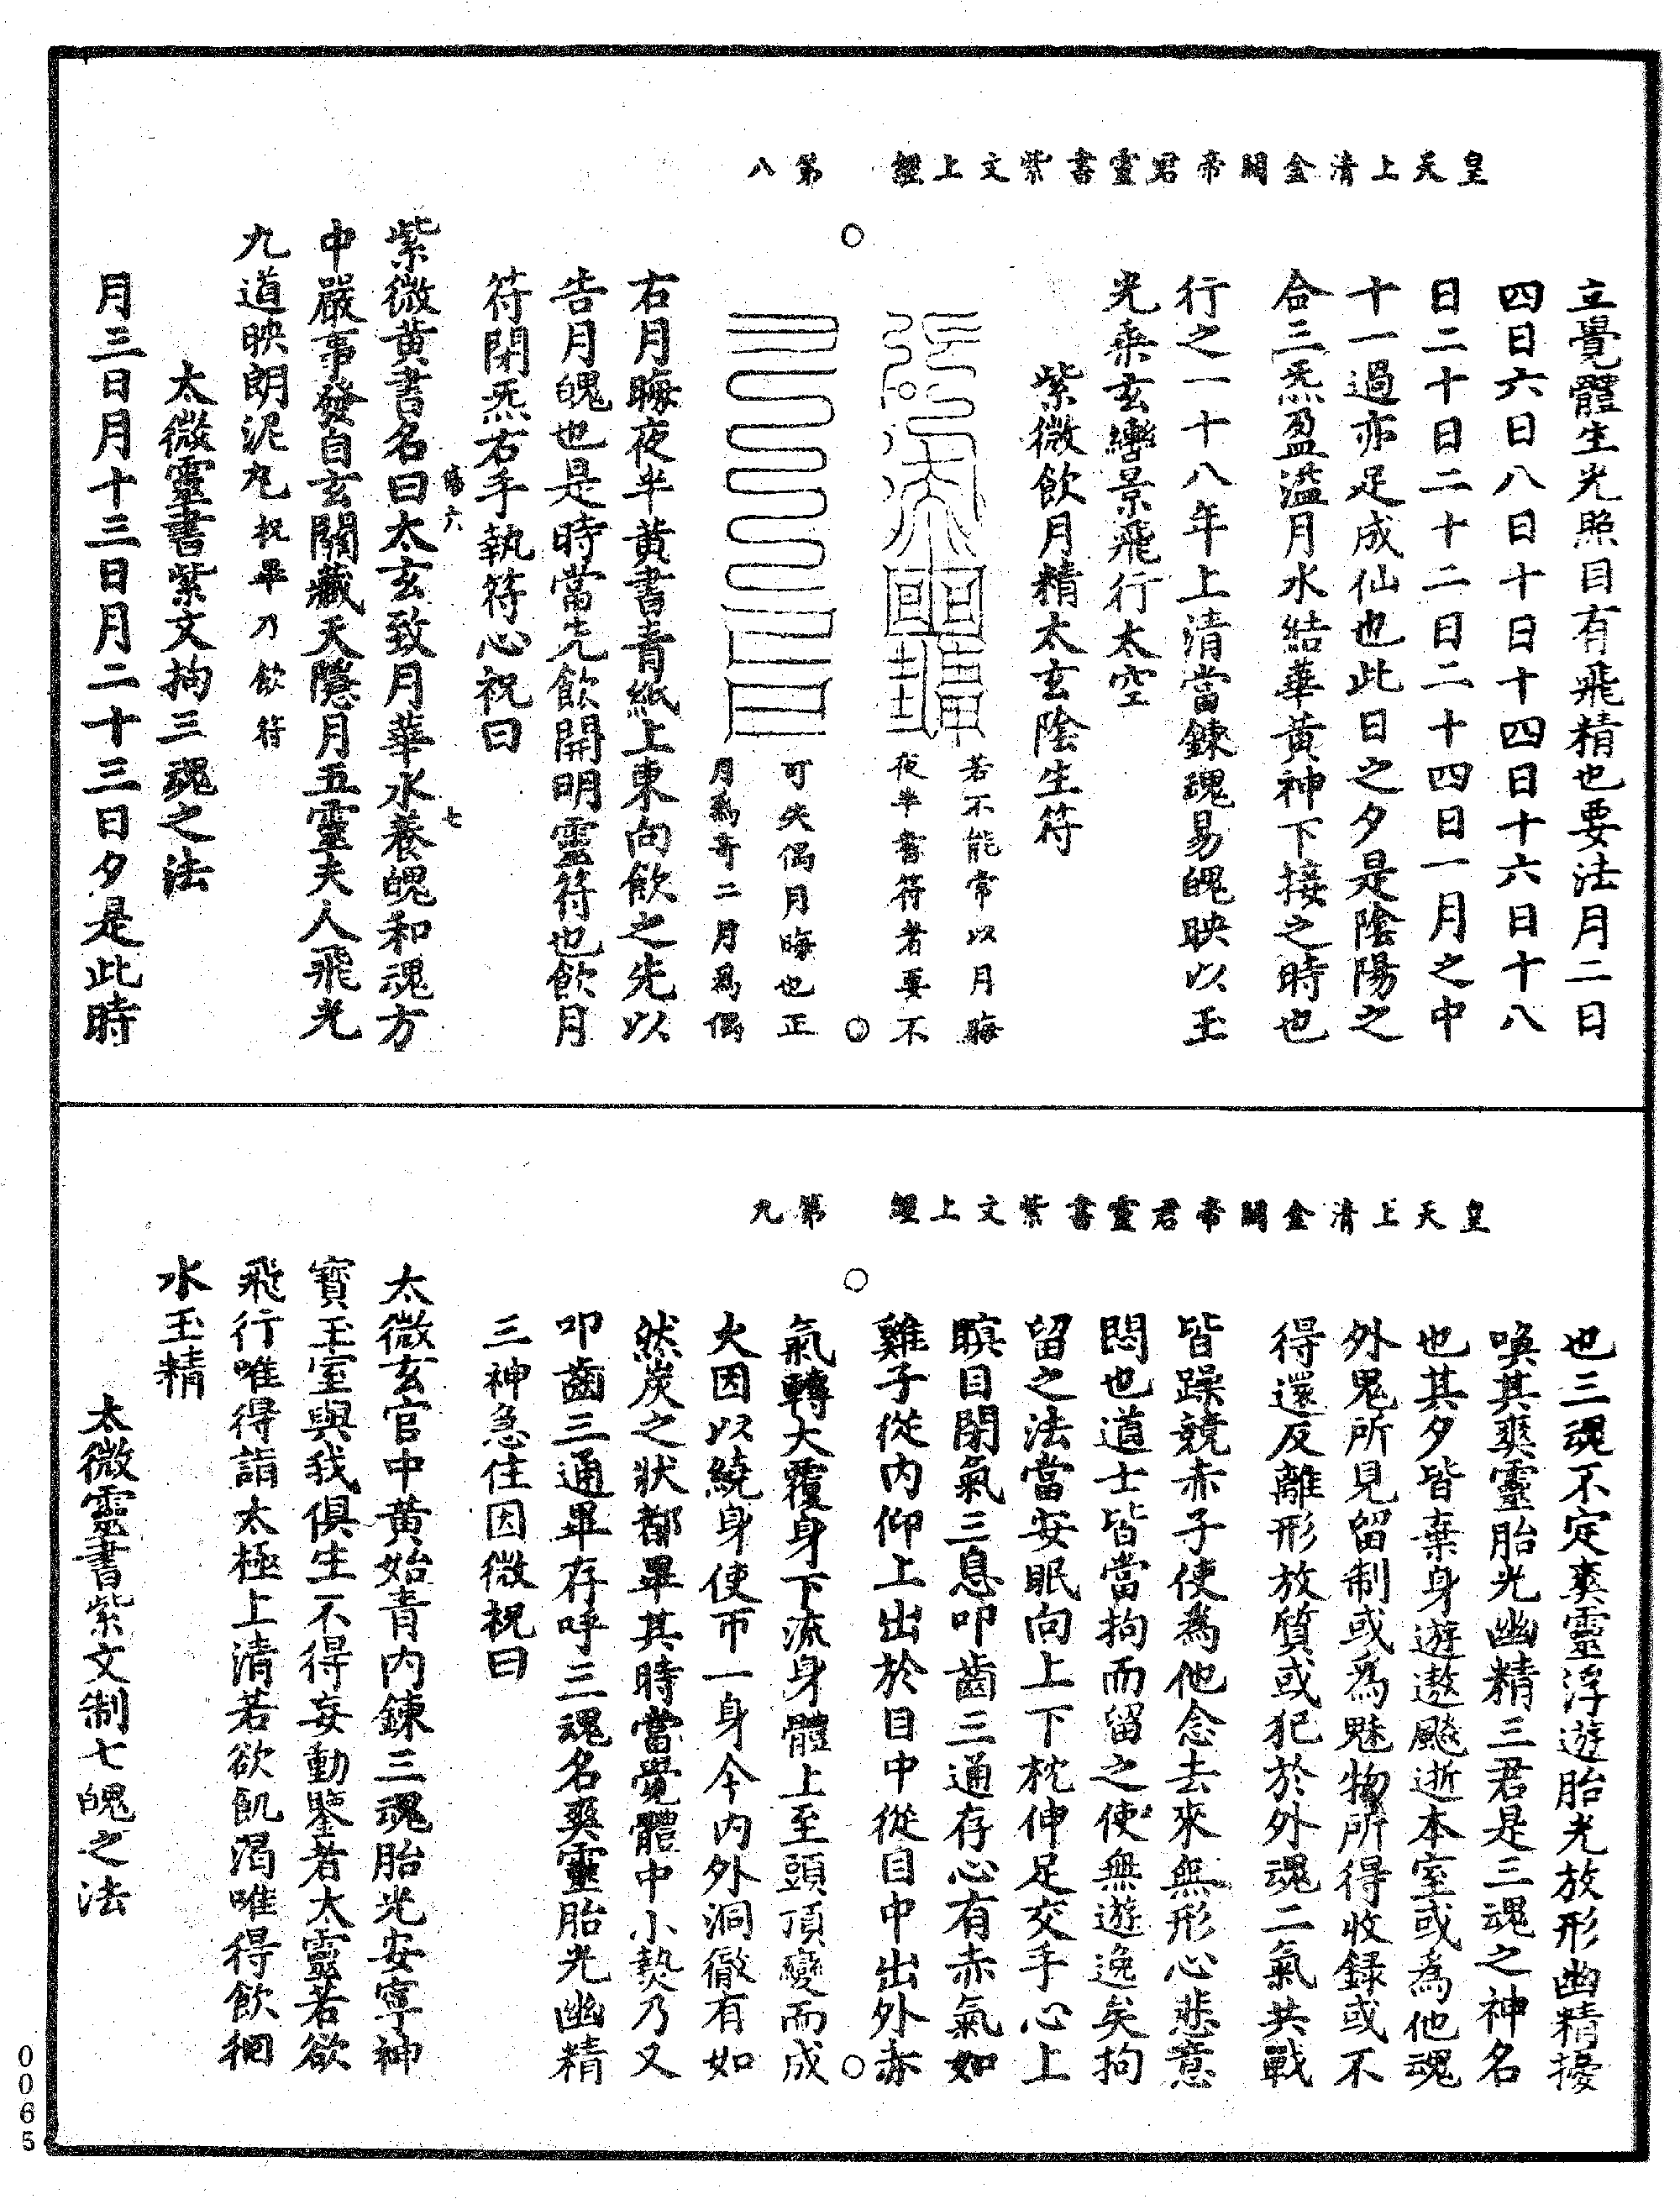 皇天上清金闕帝君靈書紫文上經　第八
立覺體生光照目有飛精也要法月二日
四日六日八日十日十四日十六日十八
日二十日二十二日二十四日一月之中
十一過亦足成仙也此日之夕是陰陽之
合三炁盈溢月水結華黃神下接之時也
行之一十八年上清當鍊魂易魄映以玉
光乘玄轡景飛行太空
紫微飲月精太玄陰生符
若不能常以月晦
夜半書符者要不
可失偶月晦也正
月爲奇二月爲偶
右月晦夜半黃書青紙上東向飲之先以
告月魄也是時當先飲開明靈符也飲月
符閉炁右手執符心祝曰
第六　七
紫微黃書名曰太玄致月華水養魄和魂方
中嚴事發自玄關藏天隱月五靈夫人飛光
九道映朗泥丸祝畢乃飲符
太微靈書紫文拘三魂之法
月三日月十三日月二十三日夕是此時
皇天上清金闕帝君靈書紫文上經　第九
也三魂不定爽靈浮遊胎光放形幽精擾
喚其爽靈胎光幽精三君是三魂之神名
也其夕皆棄身遊遨飈逝本室或為他魂
外鬼所見留制或為魅物所得收錄或不
得還反離形放質或犯於外魂二氣共戰
皆躁競赤子使為他念去來無形心悲意
悶也道士皆當拘而留之使無遊逸矣拘
留之法當安眠向上下枕伸足交手心上
瞑目閉氣三息叩齒三通存心有赤氣如
雞子從內仰上出於目中從目中出外赤
氣轉大覆身下流身體上至頭頂變而成
火因以繞身使帀一身令內外洞徹有如
然炭之狀都畢其時當覺體中小熱乃又
叩齒三通畢存呼三魂名爽靈胎光幽精
三神急住因微祝曰
太微玄宮中黃始青內鍊三魂胎光安寧神
寶玉室與我俱生不得妄動鑒者太靈若欲
飛行唯得詣太極上清若欲飢渴唯得飲徊
水玉精
太微靈書紫文制七魄之法
0065